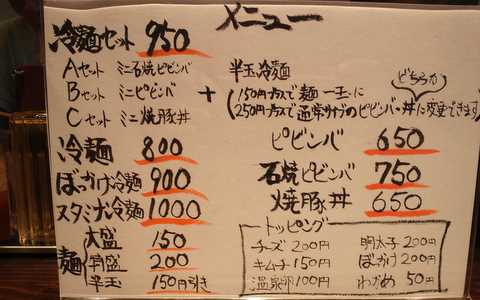 メニュー
冷麺セット 950
Aセット ミニ石焼ビビンバ
Bセット ミニビビンバ
Cセット ミニ焼豚丼
+
半玉冷麺
どちらか
(150円プラスで麺一玉に
250円プラスで通常サイズのビビンバ・丼に変更できます)
冷麺 800
ぼっかけ冷麺 900
スタミナ冷麺 1000
麺
大盛 150
特盛 200
半玉 150円引き
ビビンバ 650
石焼ビビンバ 750
焼豚丼 650
トッピング
チーズ 200円 明太子 200円
キムチ 150円 ぼっかけ 200円
温泉卵 100円 わかめ 50円